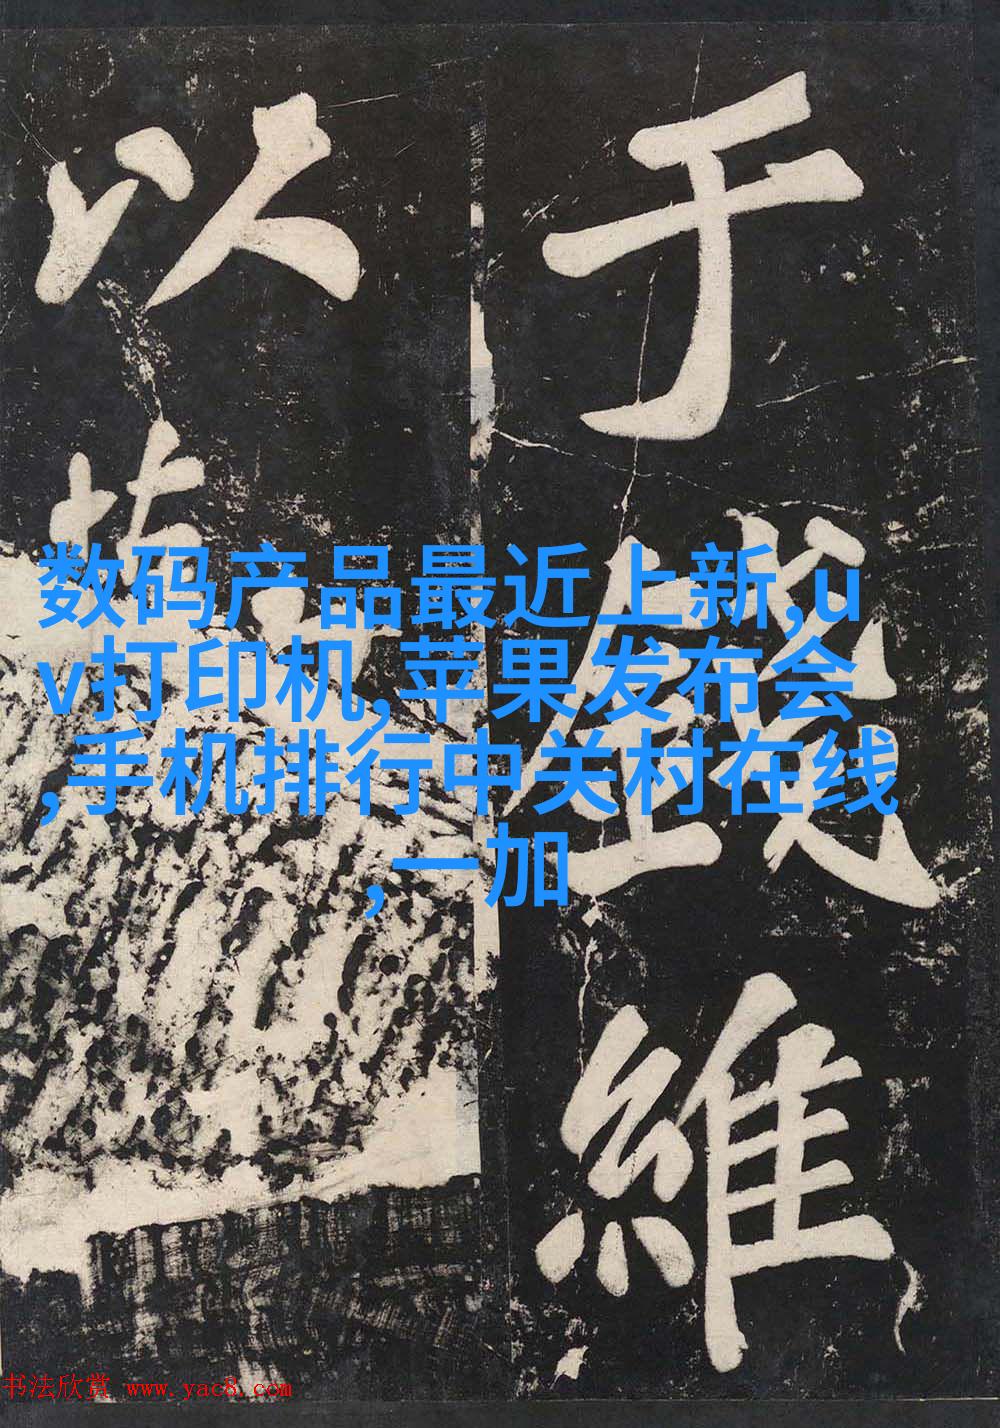 于錢維
以
数码产品最近上新,u
v打印机,苹果发布会
,手机排行中关村在线
,一加
书法欣赏 www.yac8.com